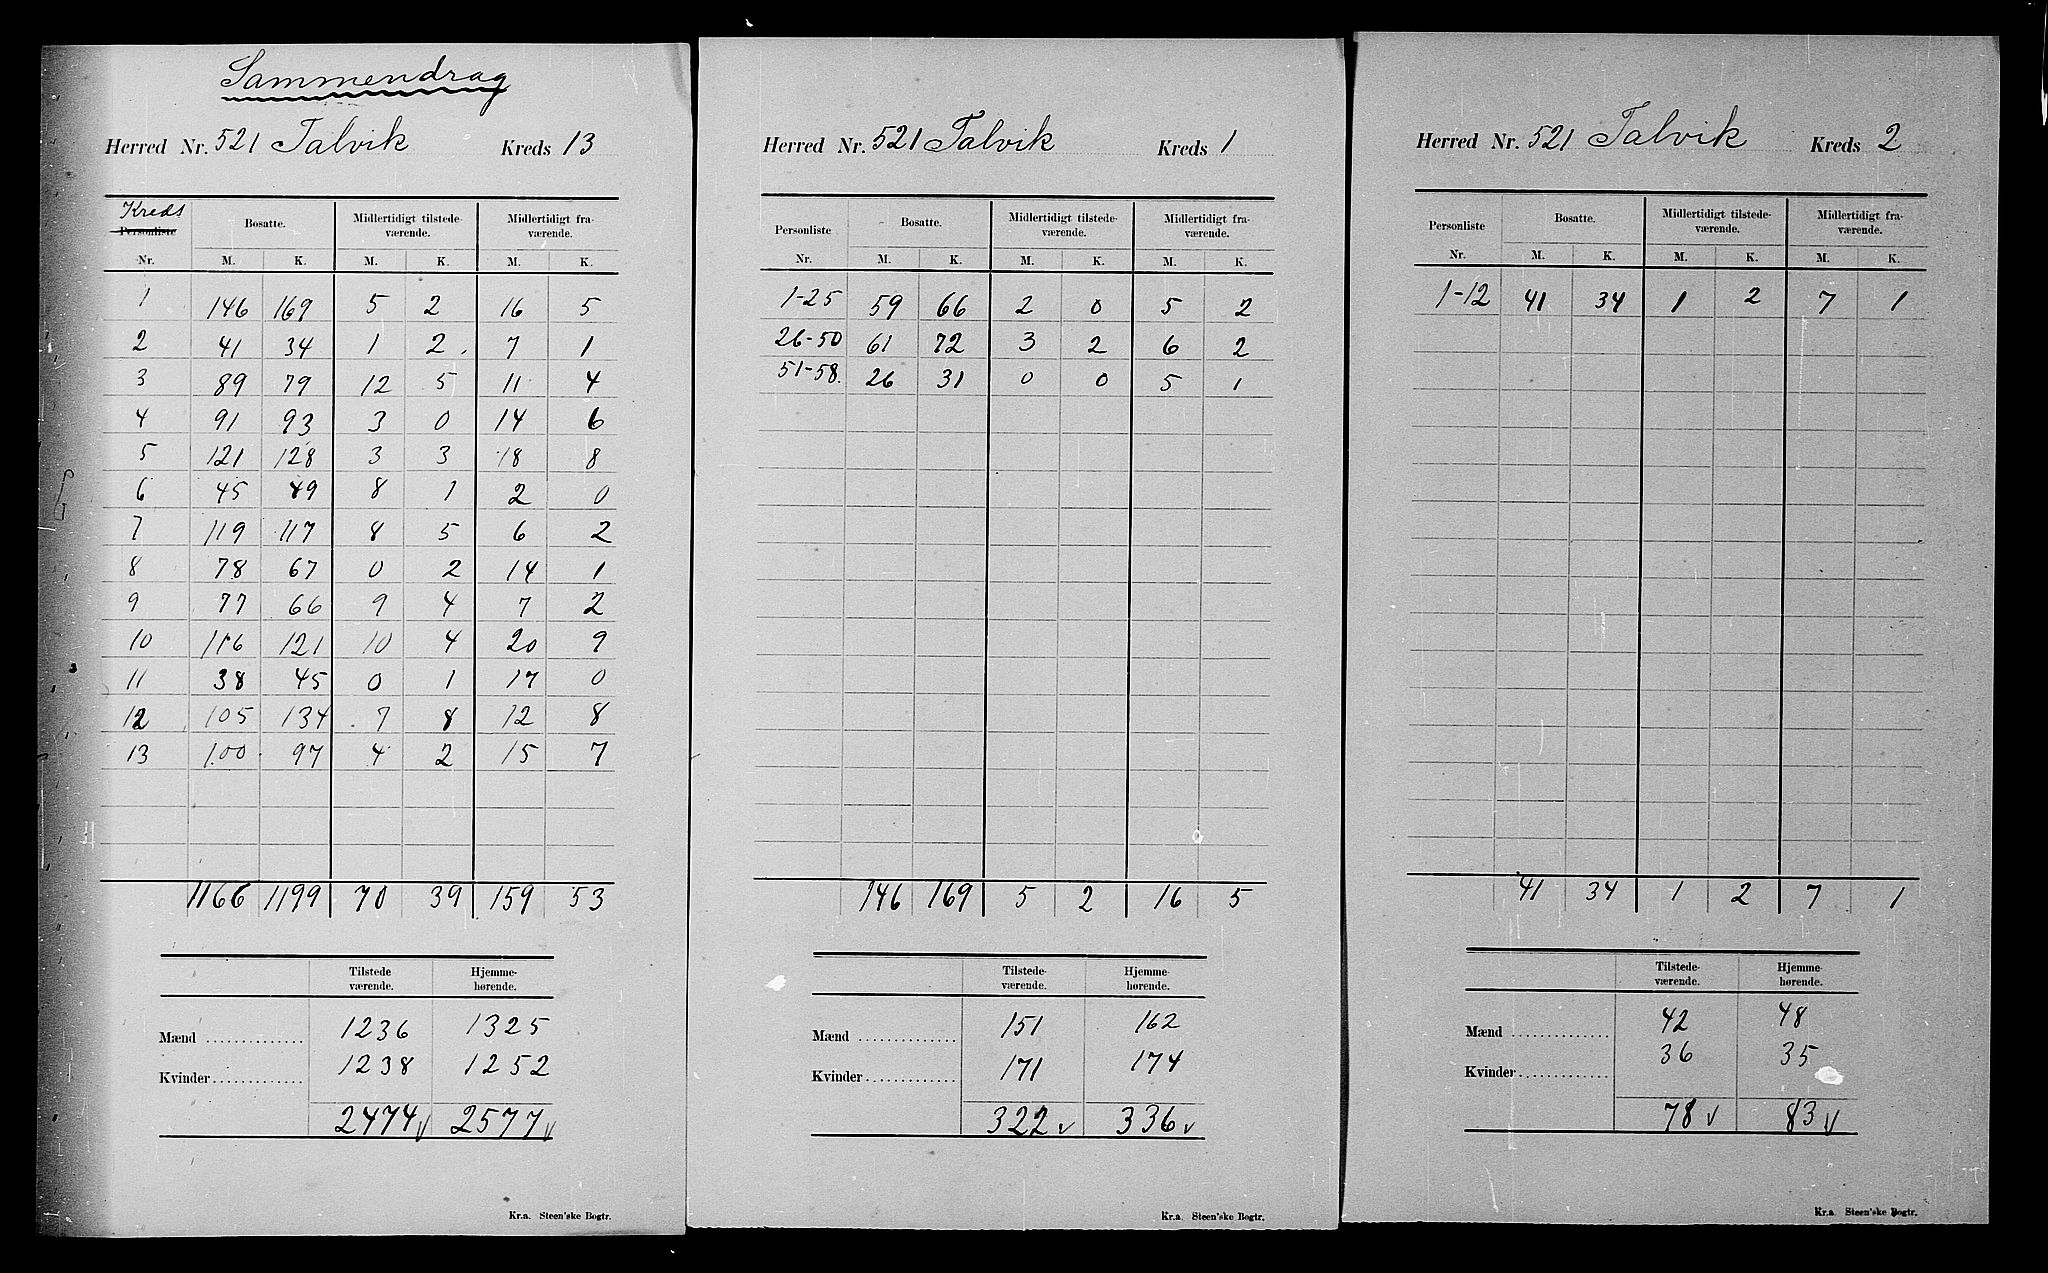 Sammendrag
Herred Nr. 521 Talvik Kreds 13
Kreds
Personliste Bosatte. Midlertidigt tilstede-værende. Midlertidigt fra-værende.
Nr. M. K. M. K. M. K.
1 146 169 5 2 16 5
2 41 34 1 2 7 1
3 89 79 12 5 11 4
4 91 93 3 0 14 6
5 121 128 3 3 18 8
6 45 49 8 1 2 0
7 119 117 8 5 6 2
8 78 67 0 2 14 1
9 77 66 9 4 7 2
10 116 121 10 4 20 9
11 38 45 0 1 17 0
12 105 134 7 8 12 8
13 100 97 4 2 15 7
1166 1199 70 39 159 53
Tilstede værende. Hjemme-hørende.
Mænd .............. 1236 1325
Kvinder .............. 1238 1252
2474 v 2577 v
Kr.a. Steen'ske Bogtr.
Herred Nr. 521 Talvik Kreds 1
Personliste Bosatte. Midlertidigt tilstede-værende. Midlertidigt fra-værende.
Nr. M. K. M. K. M. K.
1-25 59 66 2 0 5 2
26-50 61 72 3 2 6 2
51-58. 26 31 0 0 5 1
146 169 5 2 16 5
Tilstede-værende. Hjemme-hørende.
Mænd .............. 151 162
Kvinder .............. 171 174
322 v 336 v
Kr.a. Steen'ske Bogtr.
Herred Nr. 521 Talvik Kreds 2
Personliste Bosatte. Midlertidigt tilstede-værende. Midlertidigt fra-værende.
Nr. M. K. M. K. M. K.
1-12 41 34 1 2 7 1
41 34 1 2 7 1
Tilstede-værende. Hjemme-hørende.
Mænd .............. 42 48
Kvinder .............. 36 35
78 v 83 v
Kr.a. Steen'ske Bogtr.